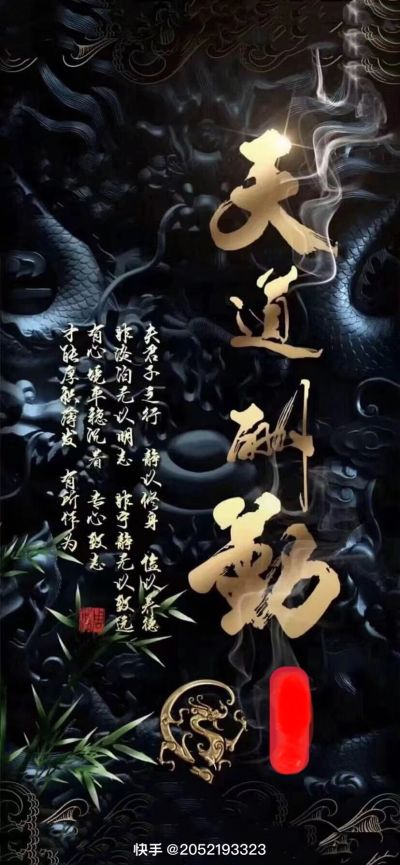 天道酬勤
夫君子之行 静以修身 俭以养德
非淡泊无以明志 非宁静无以致远
有心境平稳沉着 专心致志
才能厚积薄发 有所作为
快手 @2052193323